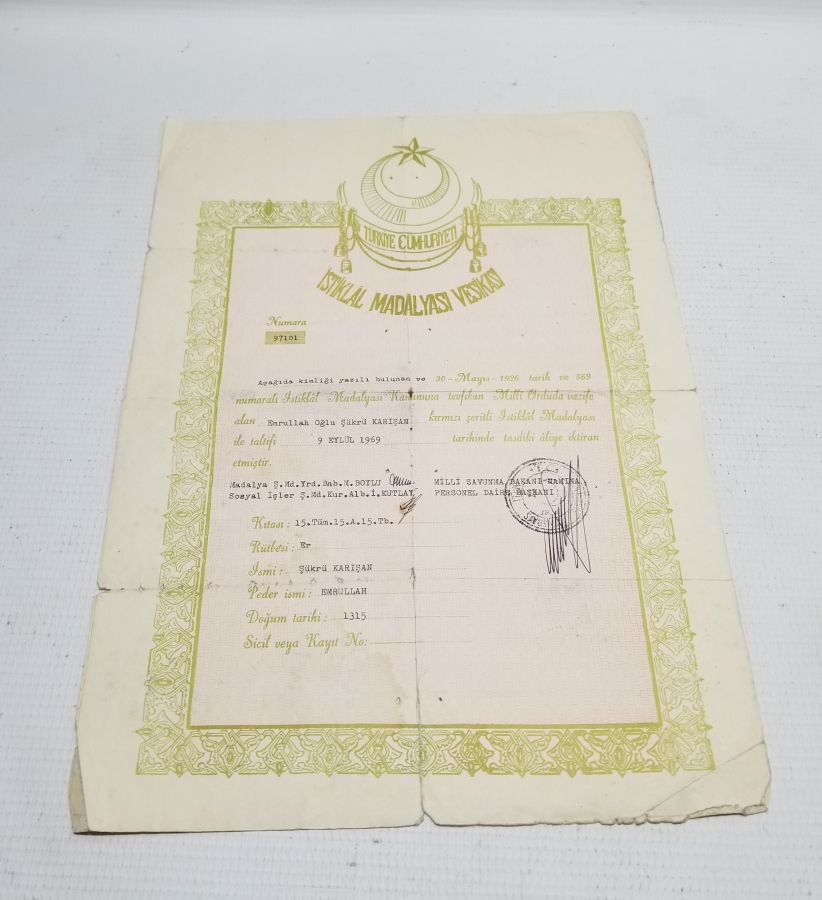 TÜRKİYE CUMHURİYETİ
İSTİKLÂL MADÂLYASI VESİKASI
Numara
97101
Aşağıda kimliği yazılı bulunan ve 30 - Mayıs - 1926 tarih ve 869
numaralı İstiklâl Madalyası Kanununa tevfikan Milli Orduda vazife
alan Emrullah Oğlu Şükrü KARIŞAN kırmızı şeritli İstiklâl Madalyası
ile taltifi 9 EYLÜL 1969 tarihinde tasdiki âliye iktiran
etmiştir.
Madalya Ş.Md.Yrd.Bnb.N.BOYLU MİLLİ SAVUNMA BAKANI NAMINA
Sosyal İşler Ş.Md.Kur.Alb.İ.KUTLAY PERSONEL DAİRE BAŞKANI
Kıtası : 15.Tüm.15.A.15.Tb.
Rütbesi : Er
İsmi : Şükrü KARIŞAN
Peder ismi : EMRULLAH
Doğum tarihi : 1315
Sicil veya Kayıt No: